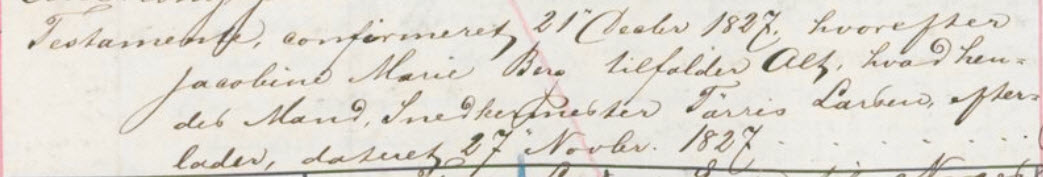 Testamente, confirmeret 21 Decbr 1827, hvorefter
Jacobine Marie Berg tilfalder Alt, hvad hen-
des Mand, Snedkermester Tarris Larsen, efter-
lader, dateret 27 Novbr. 1827 . . . . . .